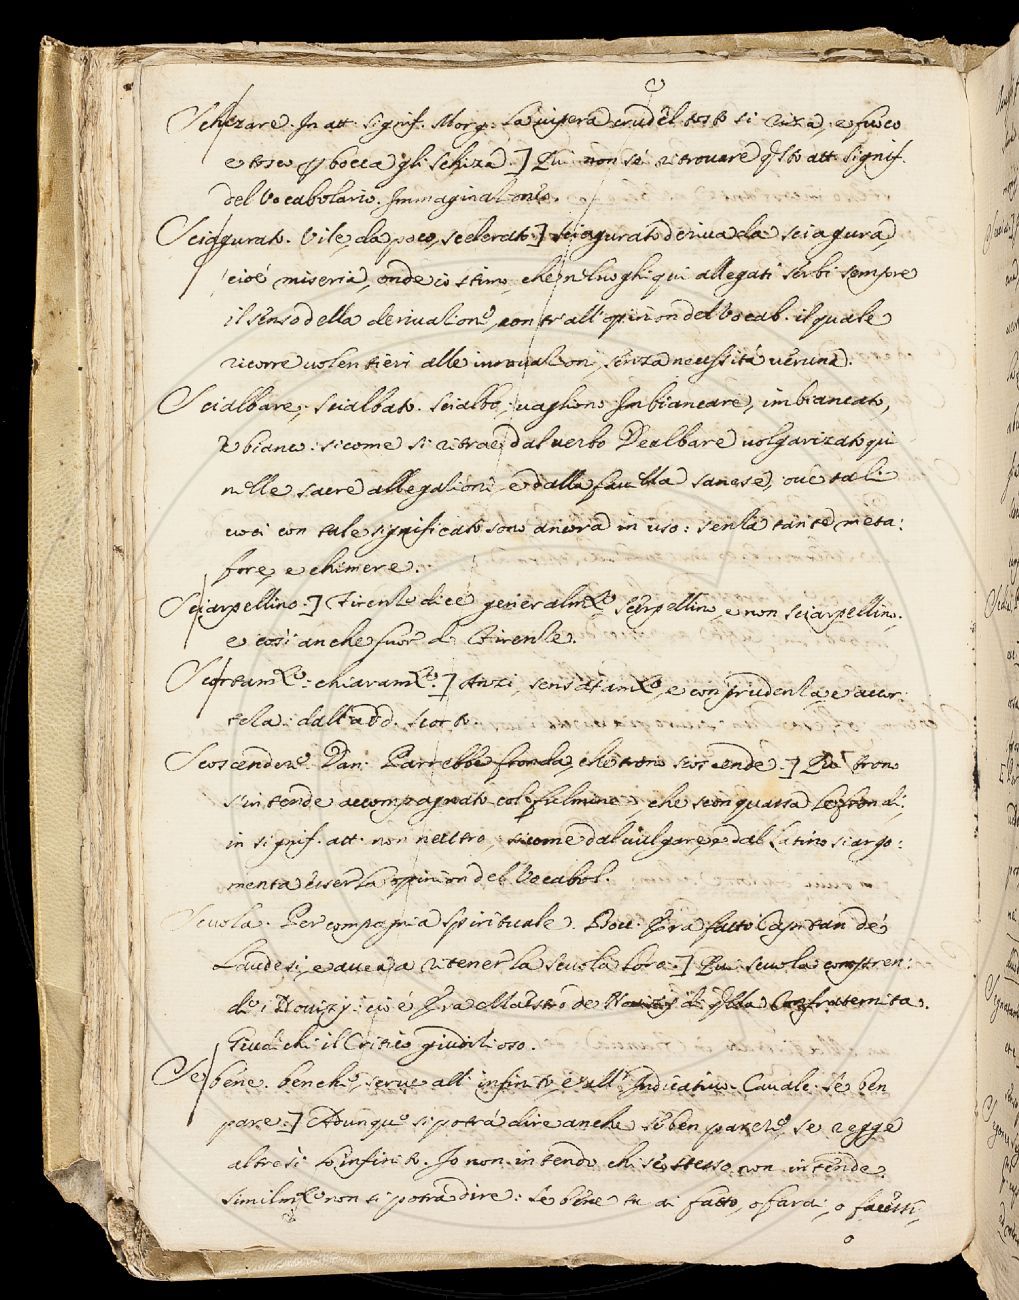 Schizare. In att. signif. Morg. La vipera crudel tosto si rizza, e fuoco
e tosco p bocca gli schiza.] Qui non sè ritrovare qsto att. signif.
del Vocabolario. Immaginationi.
Sciagurato. Vile, da poco, scelerato.] Sciagurato deriva da sciagura
cioè miseria, onde io stimo, che n luoghi qui allegati serbi sempre
il senso della derivatione, contr' all' opinion del Vocab. il quale
ricorre volentieri alle , senza necessità veruna.
Scialbare, scialbato. scialbo, vagliono Imbiancare, imbiancato,
e bianco: sicome si ritrae dal verbo Dealbare volgarizato qui
nelle sacre allegationi e dalla favella sanese, ove tali
voci con tale significato sono ancora in uso: senza tante meta:
fore, e chimere.
Sciarpellino.] Firenze dice generalmte Scerpellino, e non sciarpellino.
e così anche fuor di Firenze.
Scortamte: chiaramte.] Anzi, sensatamte, e con prudenza, e accor:
teza: dall' add. scorto.
Scoscendere. Dan. Parrebbe fronda, che trono scoscende.] Qui trono
s'intende accompagnato col fulmine, che sconquassa le frondi;
in signif. att. non neutro, sicome dal vulgare, e dal Latino si argo:
menta esser la opinion del Vocabol.
Scuola. Per compagnia spirituale. Bocc. Era fatto Capitan de
Laudesi, e aveva a ritener la scuola loro.] Qui scuola comprende
i Novizj: cioè Era Maestro de Novizj di qlla Confraternita.
Giudichi il Critico giuditioso.
Se bene. benche, serve all' infinito, e all' Indicativo. Cavalc. Se ben
pare.] Adunque si potrà dire anche se ben parere, se regge
altresì lo'nfinito. Io non intendo chi se stesso non intende.
Similmte non si potrà dire: se bene tu ai fatto, o farai, o facessi,